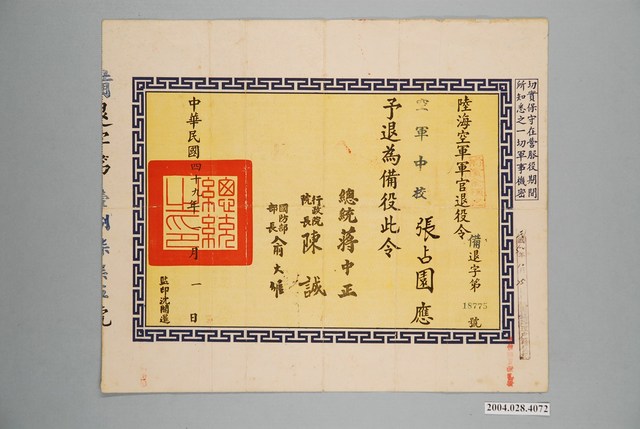 切實保守在營服役期間
所知悉之一切軍事機密
陸海空軍軍官退役令
備退字第18775號
空軍中校 張占園應
予退為備役此令
總統 蔣中正
行政院院長 陳誠
國防部部長 俞大維
中華民國四十九年 月一日
總統之印
2004.028.4072